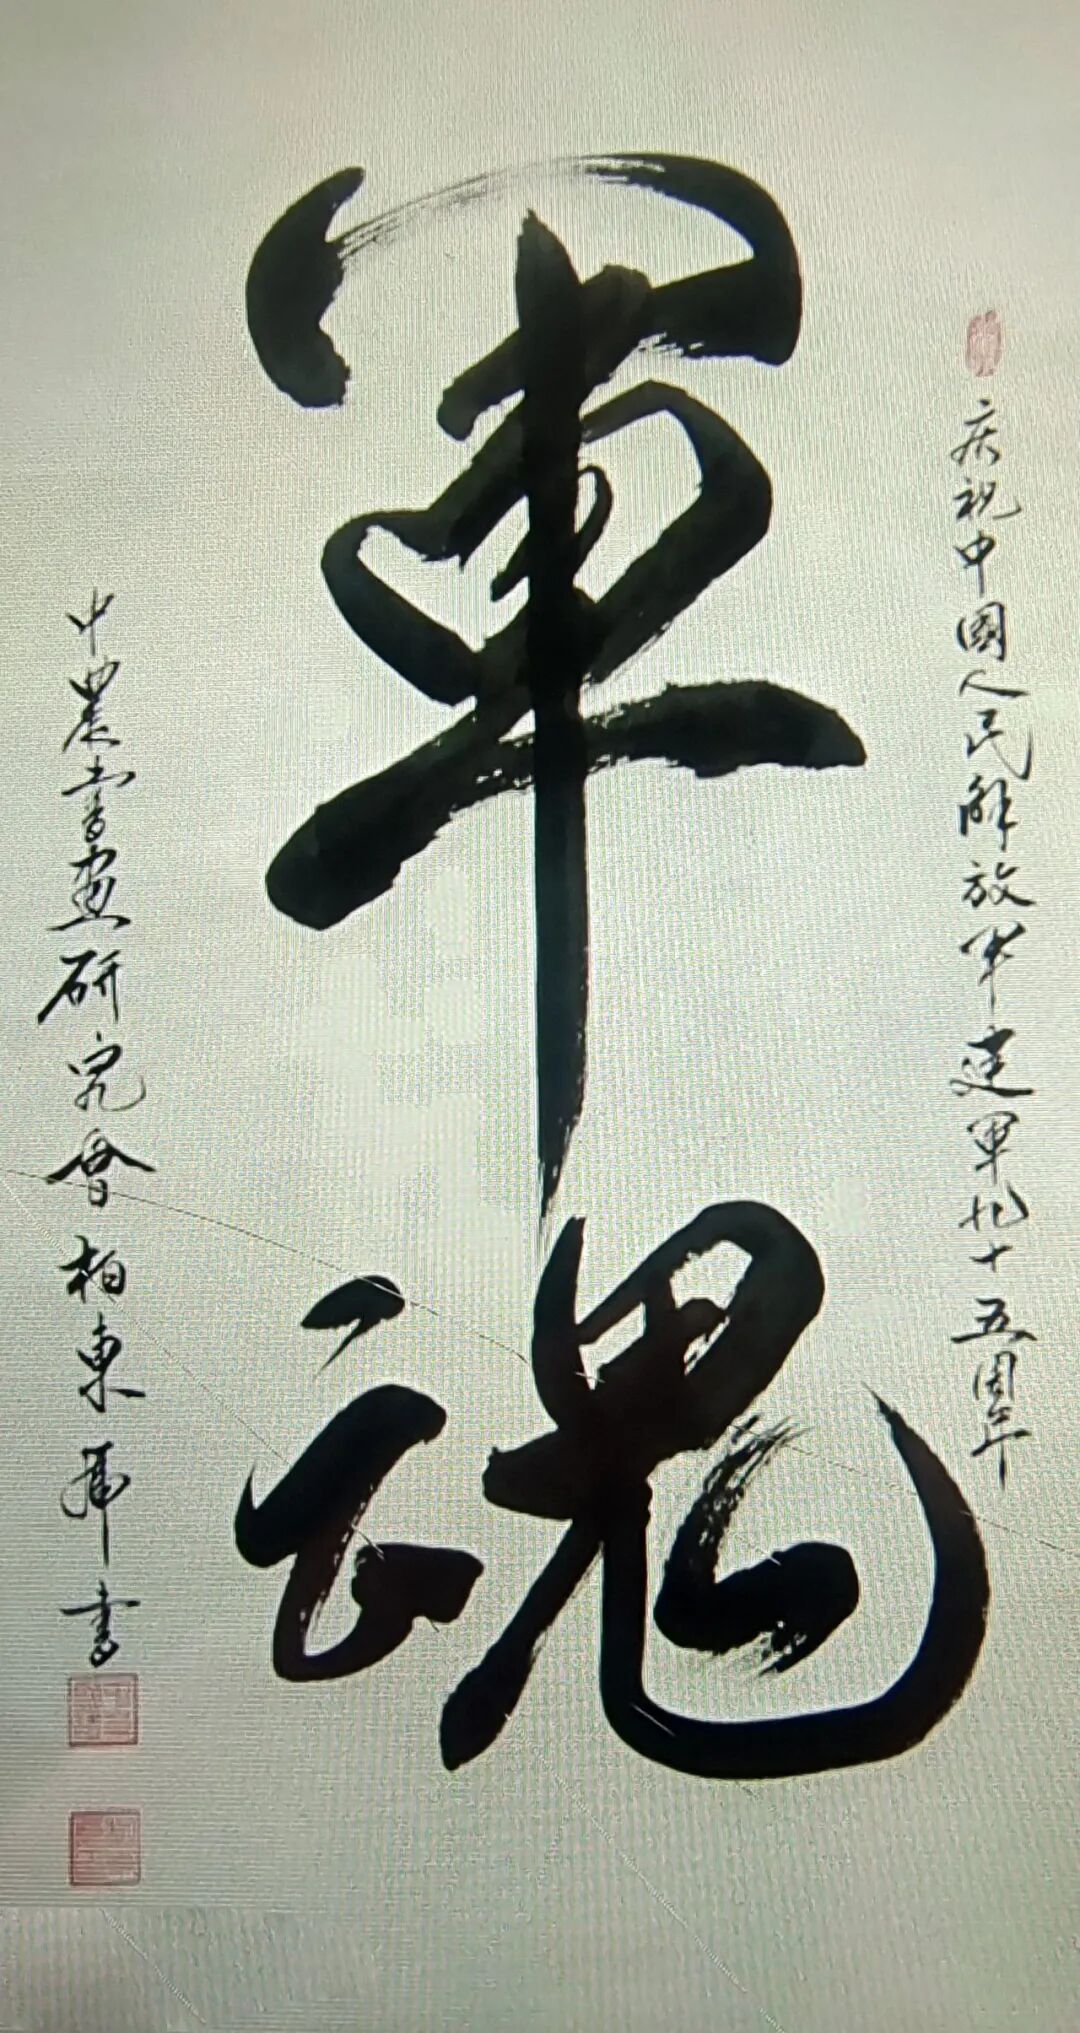 庆祝中國人民解放军建軍九十五周年
軍魂
中農書画研究會柏東書